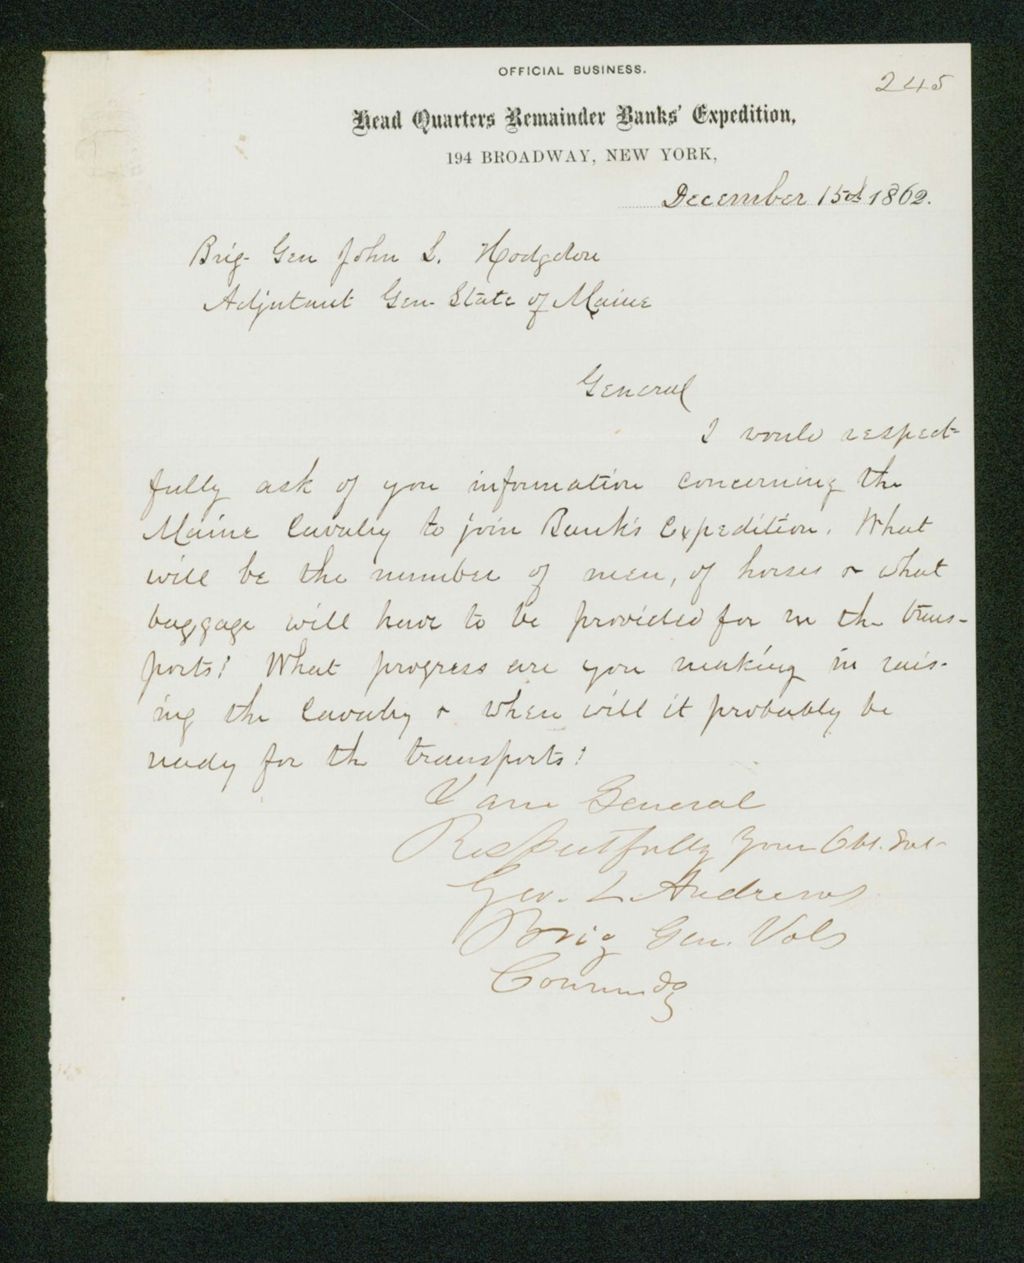 OFFICIAL BUSINESS.
245
Head Quarters Remainder Banks' Expedition,
194 BROADWAY, NEW YORK,
December 15th 1862.
Brig. Gen John L. Hodgdon
Adjutant Gen. State of Maine
General
I would respect-
fully ask of you information concerning the
Maine Cavalry to join Bank's Expedition. What
will be the number of men, of horses & what
baggage will have to be provided for in the trans-
ports? What progress are you making in rais-
ing the Cavalry & when will it probably be
ready for the transports?
I am General
Respectfully Your Obt. Svt.
Geo. L. Andrews
Brig Gen. Vols
Commdg